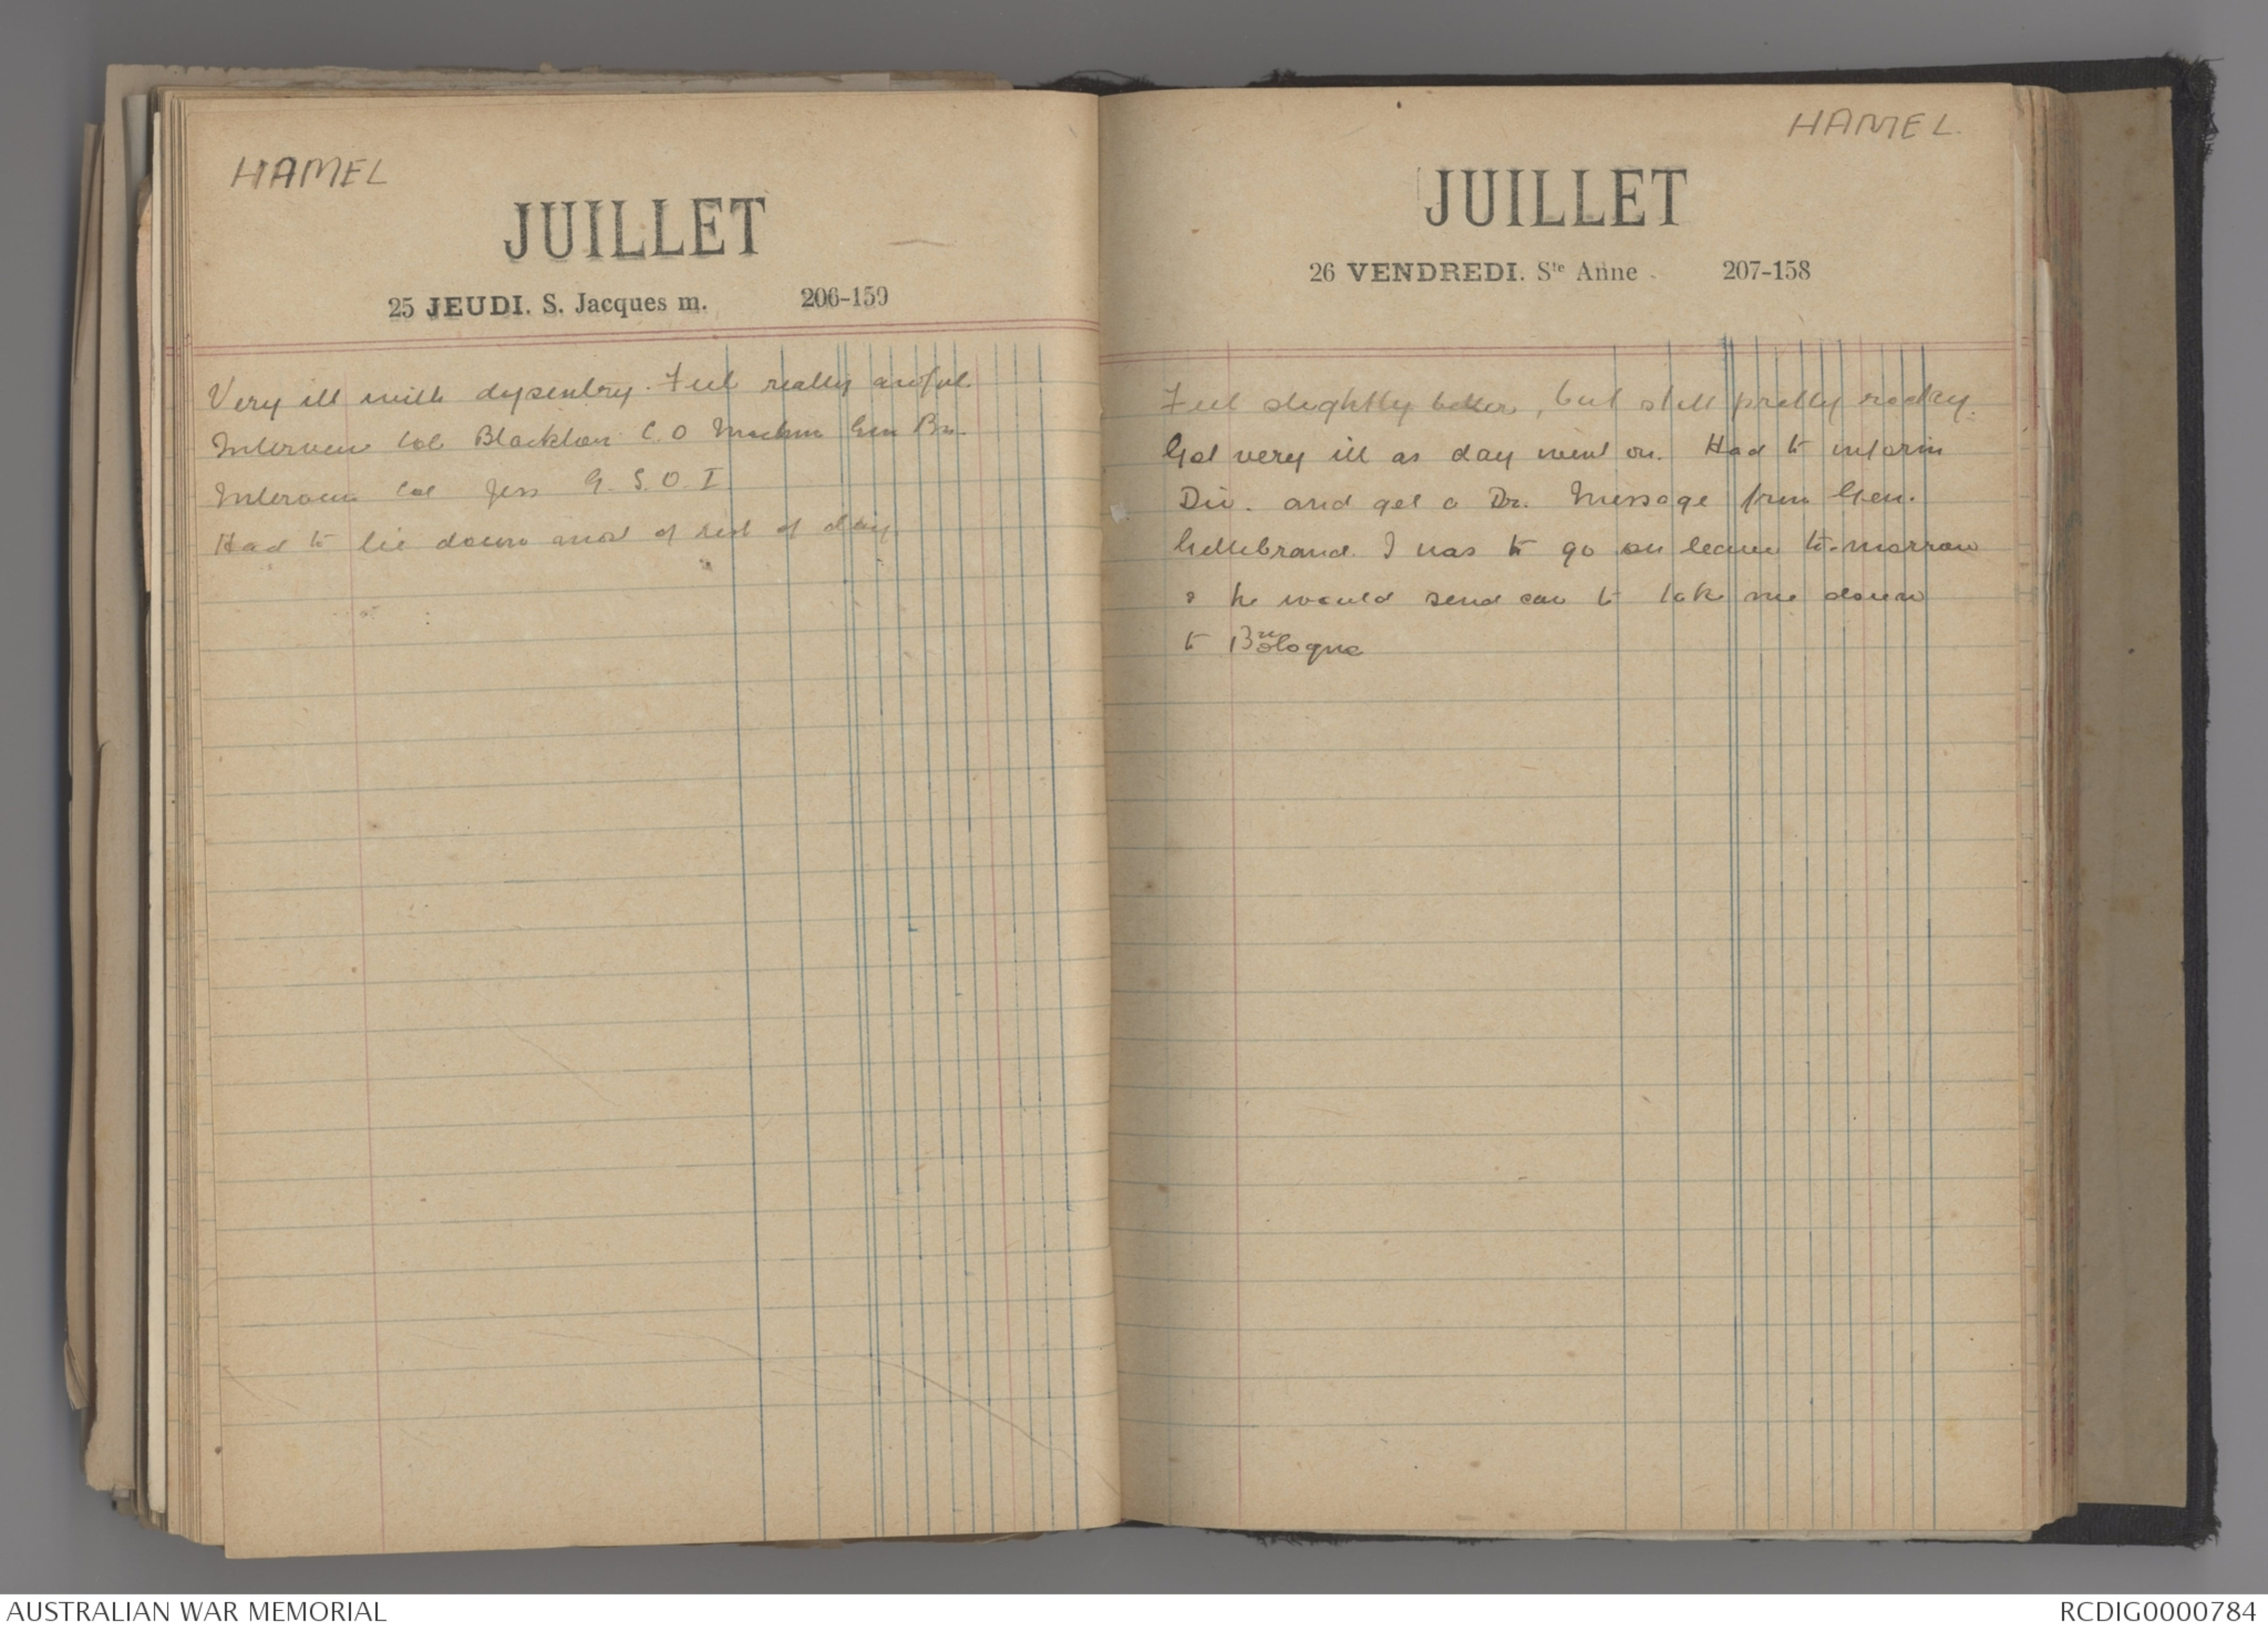 HAMEL
JUILLET
25 JEUDI. S. Jacques m. 206-159
Very ill with dysentry. Feel really awful.
Interview Col Blacklow C.O Machine Gun Bn.
Interview Col Jess G.S.O.I
Had to lie down most of rest of day
HAMEL.
JUILLET
26 VENDREDI. Ste Anne 207-158
Feel slightly better, but still pretty rocky.
Got very ill as day went on. Had to inform
Div. and get a Dr. Message from Gen.
Gellibrand I was to go on leave to-morrow
& he would send car to take me down
to Boulogne
AUSTRALIAN WAR MEMORIAL
RCDIG0000784